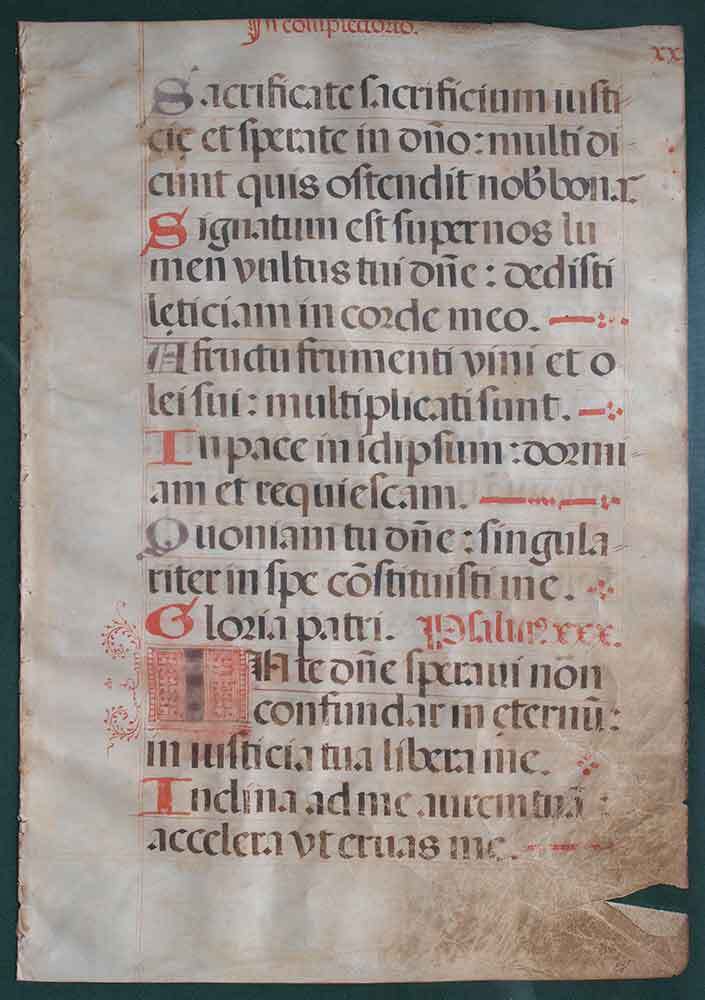 In completorio.
xx
Sacrificate sacrificium iusti-
cię et sperate in dño: multi di-
cunt quis ostendit nob bona.
Signatum est super nos lu
men vultus tui dñe: dedisti
lęticiam in corde meo.
A fructu frumenti vini et o
lei sui: multiplicati sunt.
In pace in idipsum: dormi-
am et requiescam.
Quoniam tu dñe: singula-
riter in spe cõstituisti me.
Gloria patri. Psalmꝰ xxx.
IN te dñe speraui non
confundar in ęternũ:
in iusticia tua libera me.
Inclina ad me aurem tuã:
accelera vt eruas me.